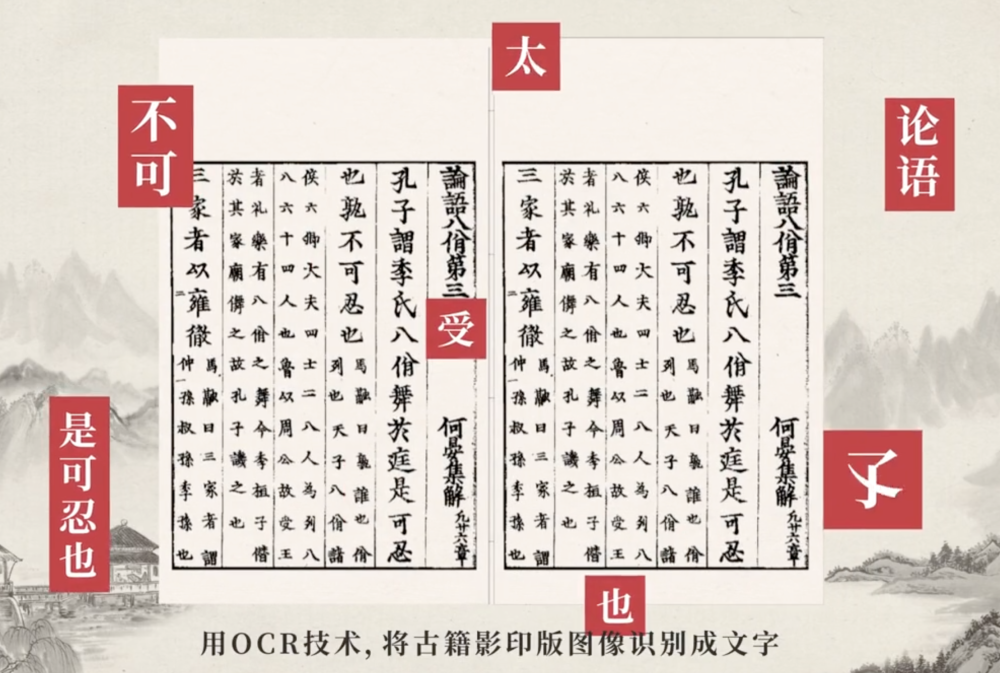 太
不可
论语
受
是可忍也
子
也
論語八佾第三 何晏集解 凡廿六章
孔子謂季氏八佾舞於庭是可忍
也孰不可忍也
馬融曰孰誰也佾
列也天子八佾諸
侯六卿大夫四士二八人為列八
八六十四人也魯以周公故受王
者礼樂有八佾之舞今季桓子僭
於其家廟儛之故孔子譏之也
三家者以雍徹
馬融曰三家者謂
仲孫叔孫季孫也
論語八佾第三 何晏集解 凡廿六章
孔子謂季氏八佾舞於庭是可忍
也孰不可忍也
馬融曰孰誰也佾
列也天子八佾諸
侯六卿大夫四士二八人為列八
八六十四人也魯以周公故受王
者礼樂有八佾之舞今季桓子僭
於其家廟儛之故孔子譏之也
三家者以雍徹
馬融曰三家者謂
仲孫叔孫季孫也
用OCR技术,将古籍影印版图像识别成文字